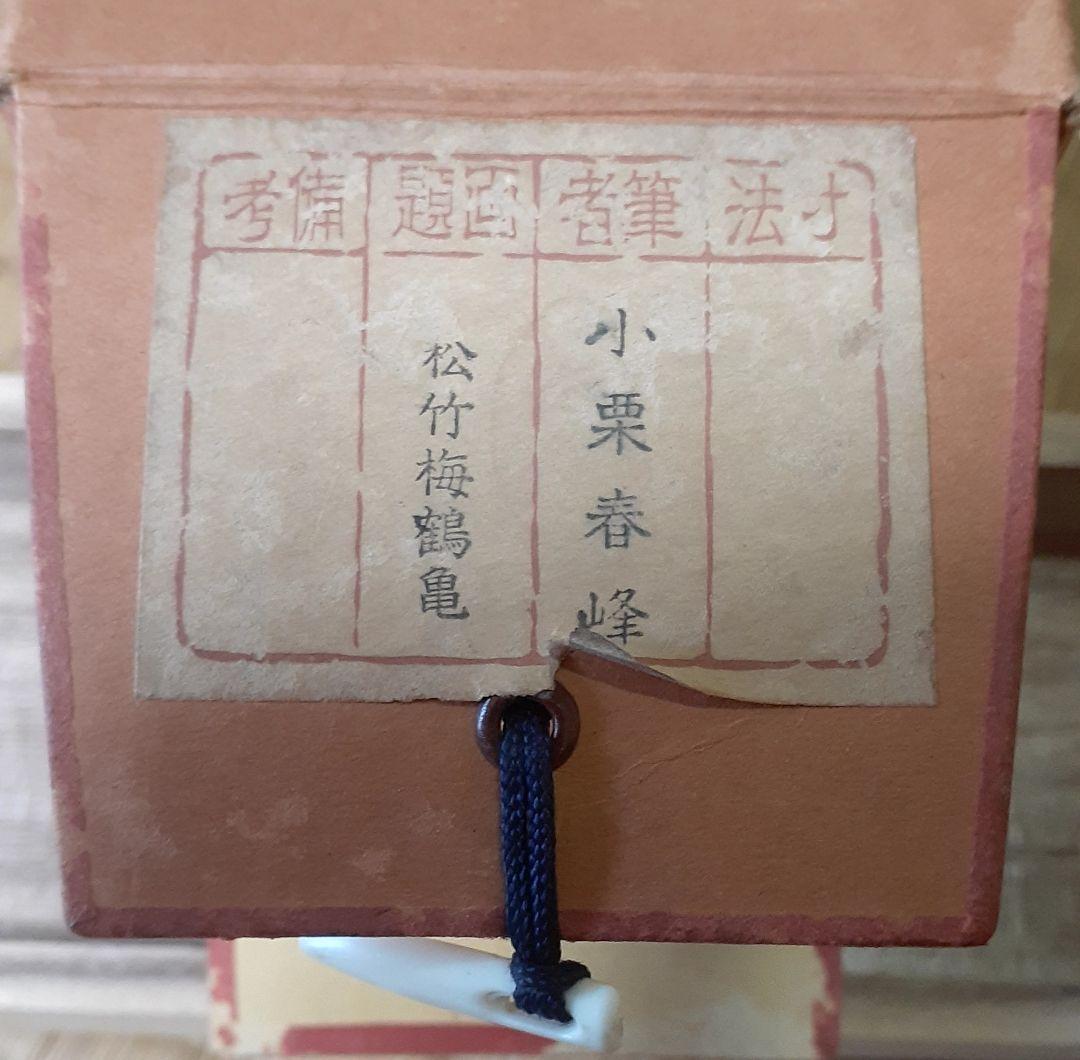 寸法
筆者
画題
備考
小栗春峰
松竹梅鶴亀